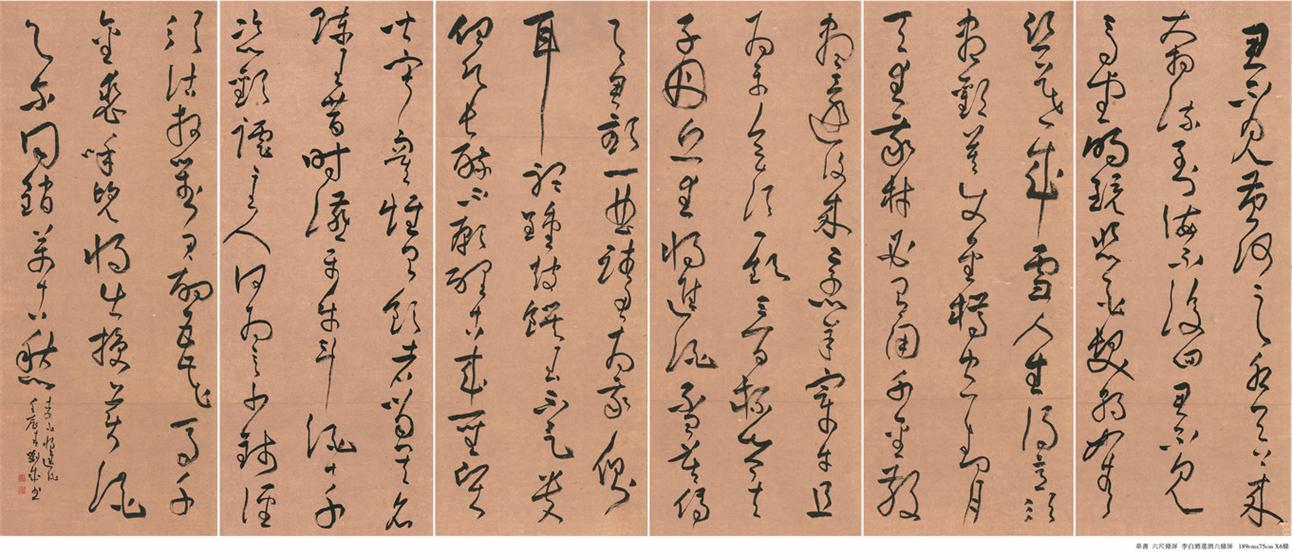 君不見黃河之水天上來
奔流到海不復回君不見
高堂明鏡悲白髮朝如青
絲暮成雪人生得意須
盡歡莫使金樽空對月
天生我材必有用千金散
盡還復來烹羊宰牛且
為樂會須一飲三百杯岑夫
子丹丘生將進酒君莫停
與君歌一曲請君為我傾
耳聽鐘鼓饌玉不足貴
但願長醉不願醒古來聖賢
皆寂寞惟有飲者留其名
陳王昔時宴平樂斗酒十千
恣歡謔主人何為言少錢徑
須沽取對君酌五花馬千
金裘呼兒將出換美酒
與爾同銷萬古愁
李白將進酒
壬辰春
草書 六尺條屏 李白將進酒六條屏 189cmx75cm X6條